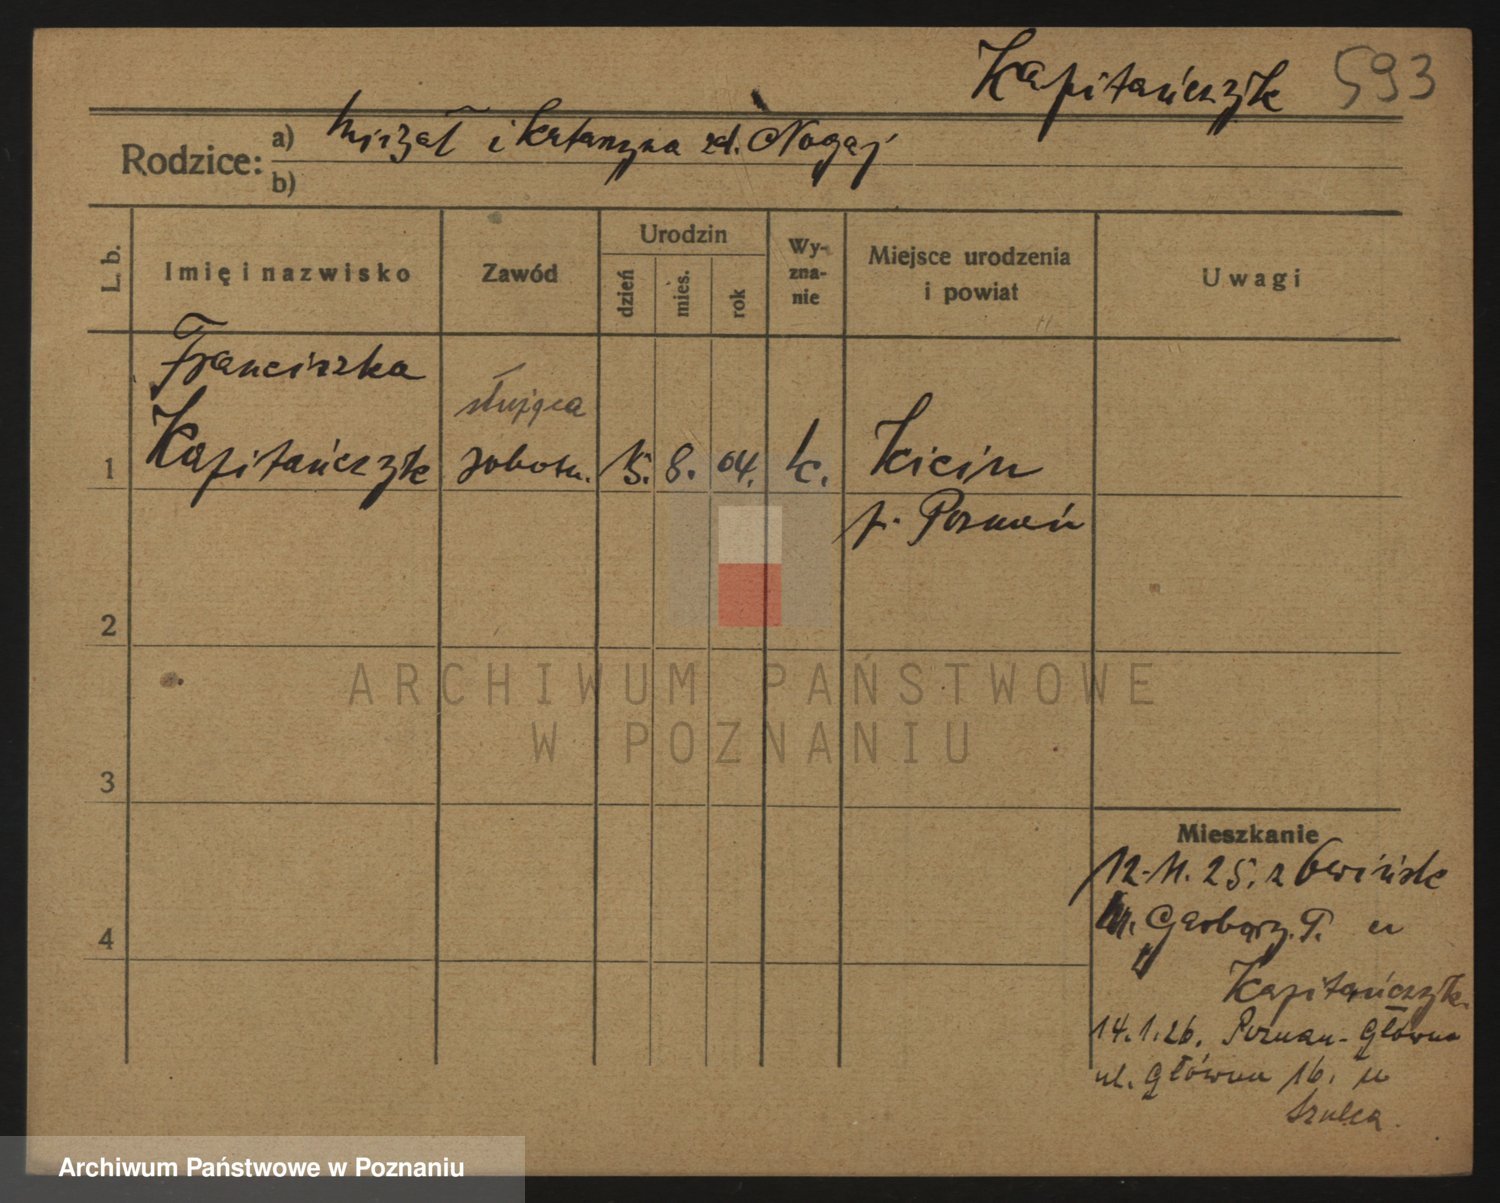 Kapitańczyk 593
Rodzice: a) Michał i Katarzyna zd. Nogaj
b)
L. b. Imię i nazwisko Zawód Urodzin dzień mies. rok Wy-zna-nie Miejsce urodzenia i powiat Uwagi
Franciszka
służąca
1 Kapitańczyk robotn. 15. 8. 04. k. Kicin
p. Poznań
2
3
4
Mieszkanie
12.11.25. z
Garbarz. u
Kapitańczyk.
14.1.26. Poznań-Główna
ul. Główna 16. u
Szulca.
ARCHIWUM PAŃSTWOWE
W POZNANIU
Archiwum Państwowe w Poznaniu